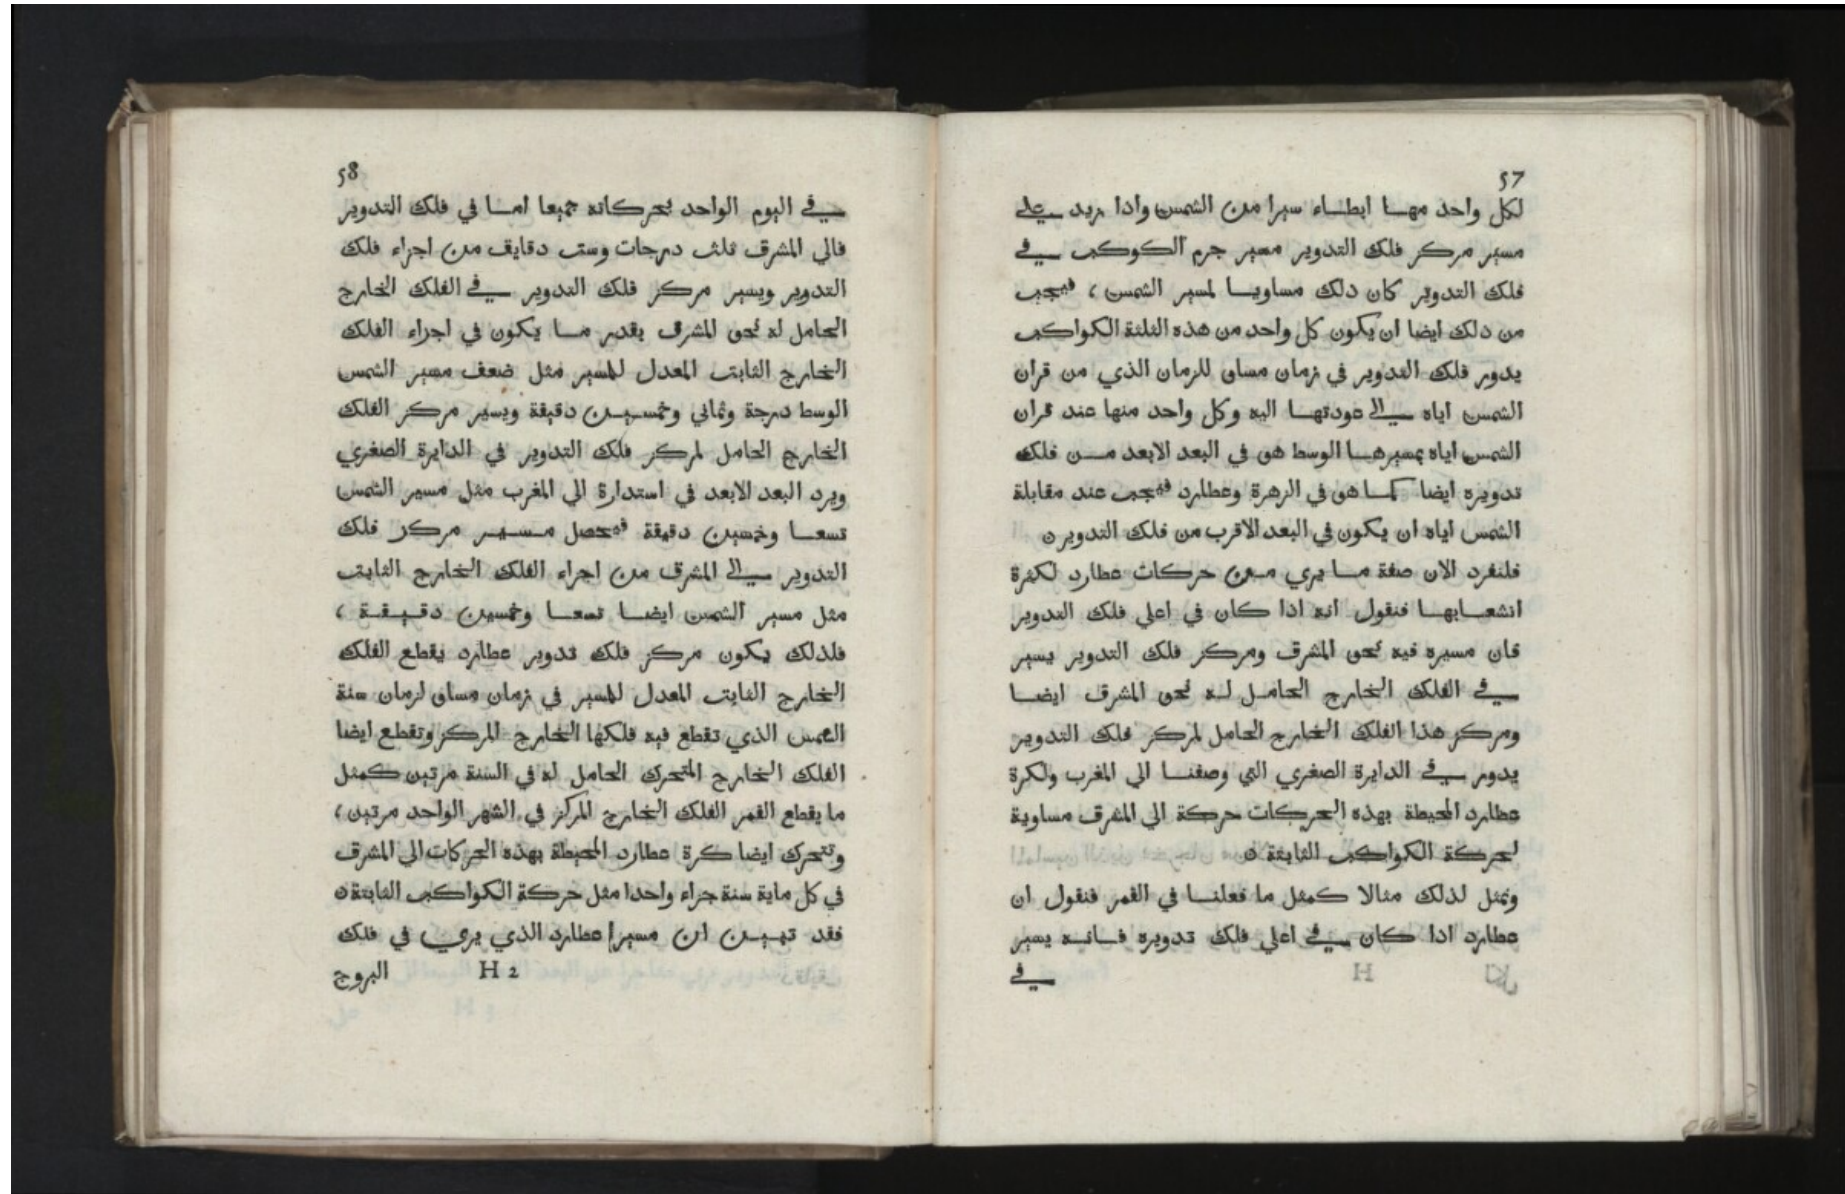 57
لكل واحد مهـا ابطـاء سيرا من الشمس واذا زيد على
مسير مركز فلك التدوير مسير جرم الكوكب في
فلك التدوير كان دلك مساويا لمسير الشمس ، فيجب
من دلك ايضا ان يكون كل واحد من هذه الثلثة الكواكب
يدور فلك التدوير في زمان مساو للزمان الذي من قران
الشمس اياه الى عودتها اليه وكل واحد منها عند قران
الشمس اياه بمسيرها الوسط هو في البعد الابعد من فلك
تدويره ايضا كما هو في الزهرة وعطارد فيجب عند مقابلة
الشمس اياه ان يكون في البعد الاقرب من فلك التدوير ٥
فلنفرد الان صفة ما يري من حركات عطارد لكثرة
انشعابها فنقول انه ادا كان في اعلي فلك التدوير
فان مسيره فيه نحو المشرق ومركز فلك التدوير يسير
في الفلك الخارج الحامل له نحو المشرق ايضا
ومركز هذا الفلك الخارج الحامل لمركز فلك التدوير
يدور في الدايرة الصغري التي وصفنا الي المغرب ولكرة
عطارد المحيطة بهذه الحركات حركة الي المشرق مساوية
لحركة الكواكب الثابتة ٥
ونمثل لذلك مثالا كمثل ما فعلنا في القمر فنقول ان
عطارد ادا كان في اعلي فلك تدويره فانه يسير
H في
58
في اليوم الواحد بحركاته جميعا اما في فلك التدوير
فالي المشرق ثلث درجات وست دقايق من اجزاء فلك
التدوير ويسير مركز فلك التدوير في الفلك الخارج
الحامل له نحو المشرق بقدر ما يكون في اجزاء الفلك
الخارج الثابت المعدل للمسير مثل ضعف مسير الشمس
الوسط درجة وثماني وخمسين دقيقة ويسير مركز الفلك
الخارج الحامل لمركز فلك التدوير في الدايرة الصغري
ويرد البعد الابعد في استدارة الي المغرب مثل مسير الشمس
تسعا وخمسين دقيقة فيحصل مسير مركز فلك
التدوير الى المشرق من اجزاء الفلك الخارج الثابت
مثل مسير الشمس ايضا تسعا وخمسين دقيقة ،
فلذلك يكون مركز فلك تدوير عطارد يقطع الفلك
الخارج الثابت المعدل للمسير في زمان مساو لزمان سنة
الشمس الذي تقطع فيه فلكها الخارج المركز وتقطع ايضا
الفلك الخارج المتحرك الحامل له في السنة مرتين كمثل
ما يقطع القمر الفلك الخارج المركز في الشهر الواحد مرتين ،
وتتحرك ايضا كرة عطارد المحيطة بهذه الحركات الي المشرق
في كل ماية سنة جزاء واحدا مثل حركة الكواكب الثابتة ٥
فقد تبين ان مسير عطارد الذي يري في فلك
H 2 البروج